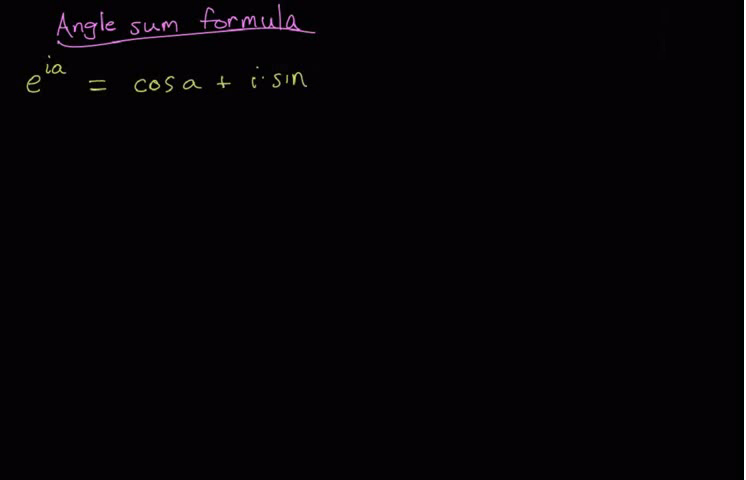 Angle sum formula
e^{ia} = cos a + i·sin